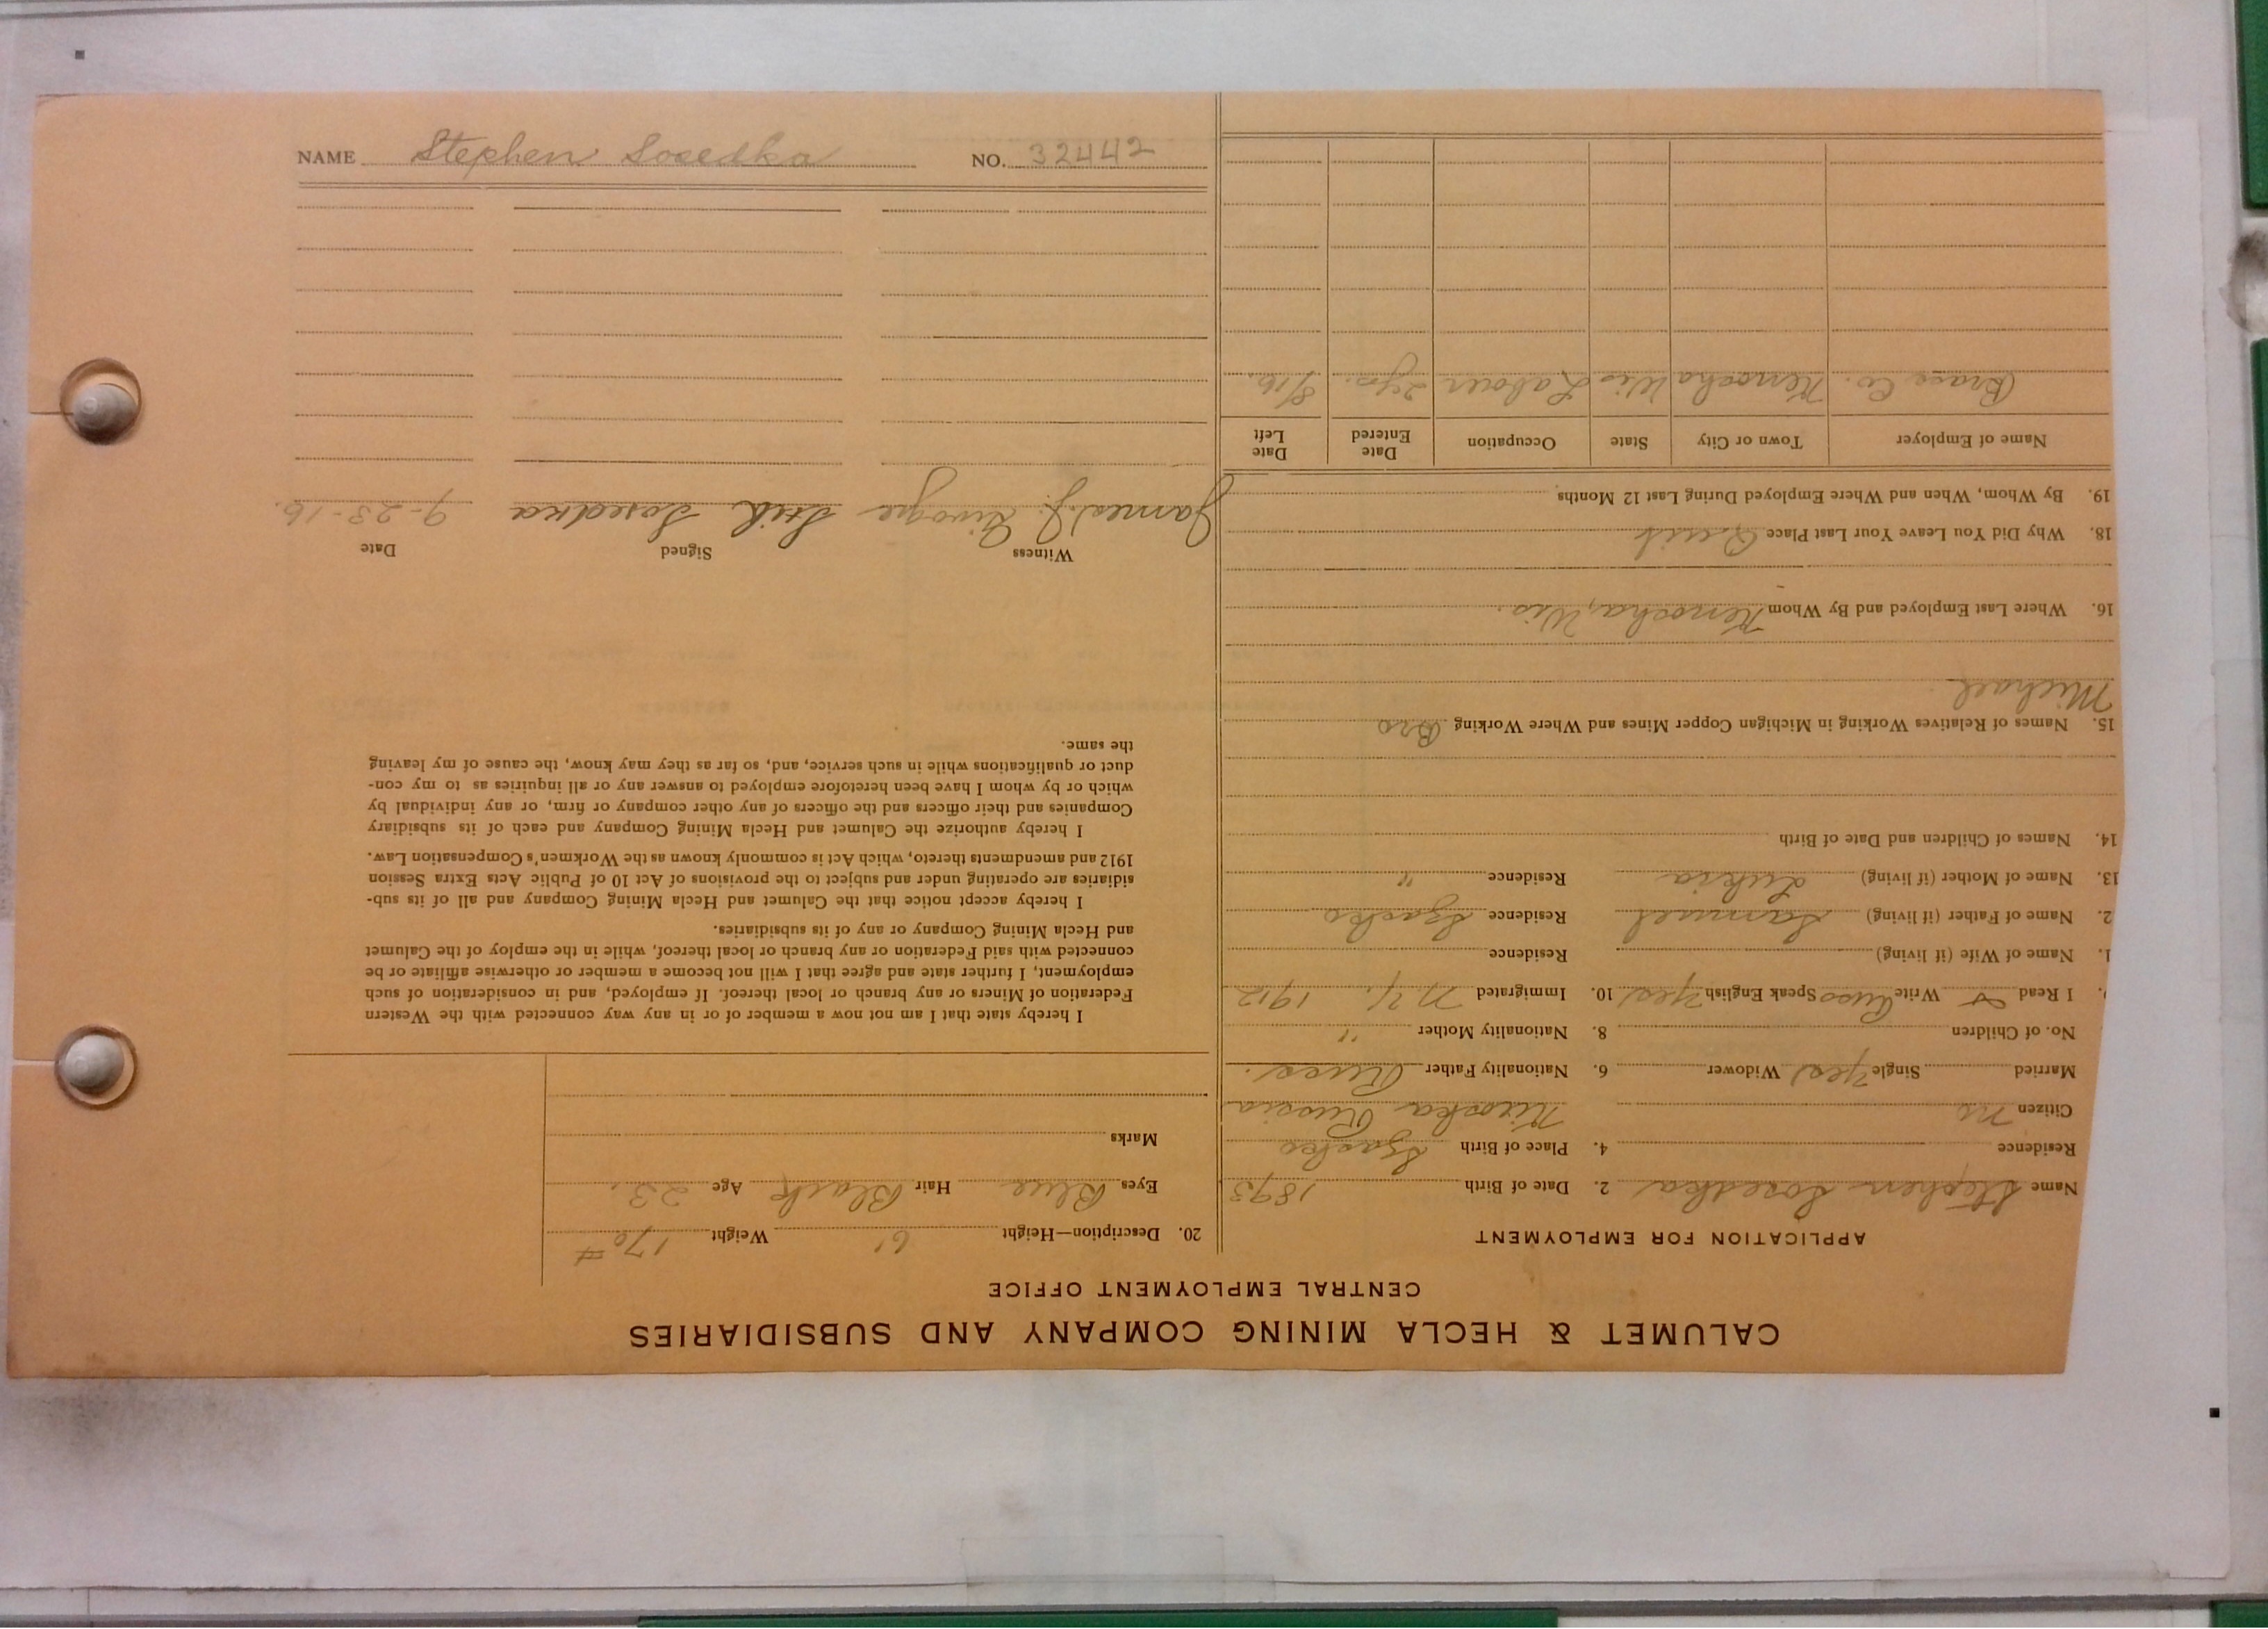 NAME Stephen Sosedka NO. 32442
CALUMET & HECLA MINING COMPANY AND SUBSIDIARIES
CENTRAL EMPLOYMENT OFFICE
APPLICATION FOR EMPLOYMENT
Name Stephen Sosedka 2. Date of Birth 1893
Residence 4. Place of Birth
Citizen no Russia
Married Single Yes Widower 6. Nationality Father Russ.
No. of Children 8. Nationality Mother "
I Read & Write Russ Speak English Yes 10. Immigrated N.Y. 1912
1. Name of Wife (if living) Residence
2. Name of Father (if living) Samuel Residence
13. Name of Mother (if living) Lukia Residence "
14. Names of Children and Date of Birth
15. Names of Relatives Working in Michigan Copper Mines and Where Working Bro
Michael
16. Where Last Employed and By Whom Kenosha, Wis.
18. Why Did You Leave Your Last Place Quit
19. By Whom, When and Where Employed During Last 12 Months
Name of Employer Town or City State Occupation Date Entered Date Left
Co. Kenosha Wis Labour 2 yrs. 8/16.
20. Description—Height 6' Weight 170 #
Eyes Blue Hair Black Age 23.
Marks
I hereby state that I am not now a member of or in any way connected with the Western
Federation of Miners or any branch or local thereof. If employed, and in consideration of such
employment, I further state and agree that I will not become a member or otherwise affiliate or be
connected with said Federation or any branch or local thereof, while in the employ of the Calumet
and Hecla Mining Company or any of its subsidiaries.
I hereby accept notice that the Calumet and Hecla Mining Company and all of its sub-
sidiaries are operating under and subject to the provisions of Act 10 of Public Acts Extra Session
1912 and amendments thereto, which Act is commonly known as the Workmen's Compensation Law.
I hereby authorize the Calumet and Hecla Mining Company and each of its subsidiary
Companies and their officers and the officers of any other company or firm, or any individual by
which or by whom I have been heretofore employed to answer any or all inquiries as to my con-
duct or qualifications while in such service, and, so far as they may know, the cause of my leaving
the same.
Date Signed Witness
9-23-16. Sosedka James J.